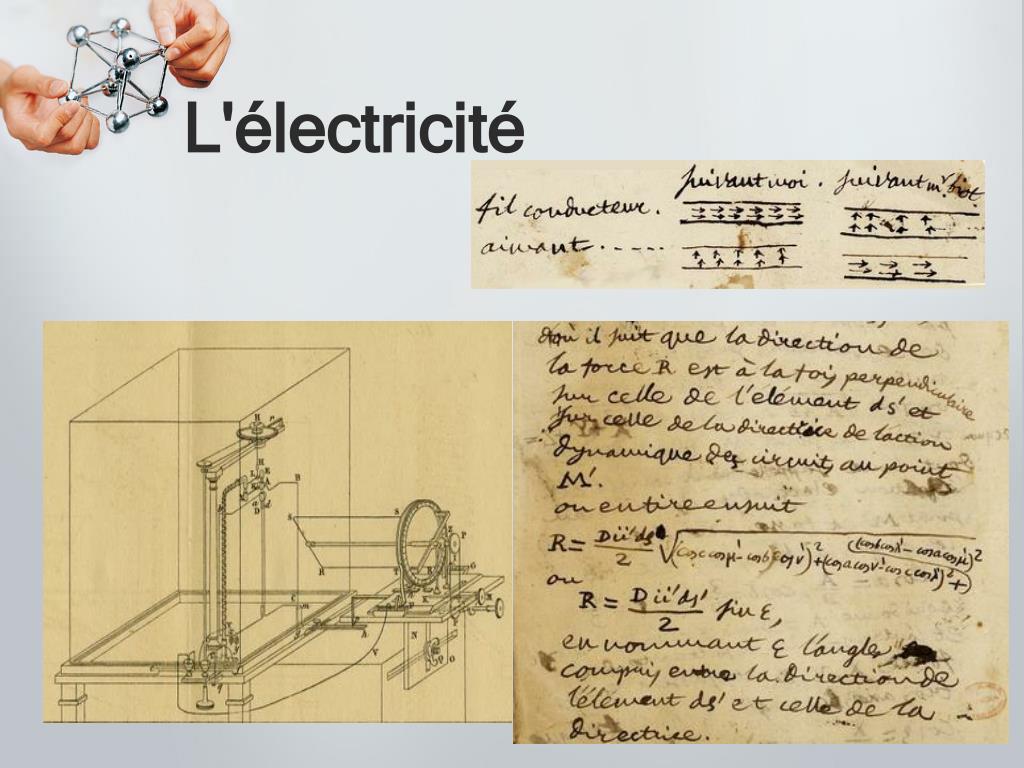 L'électricité
suivant moi. suivant mr. biot.
fil conducteur.
aimant.......
d'où il suit que la direction de
la force R est à la fois perpendiculaire
sur celle de l'élément ds' et
sur celle de la directrice de l'action
dynamique des circuits au point
M'.
on en tire ensuit
R = Dii'ds' / 2 √(cosc cosμ' - cosb cosν')² + (cosa cosν' - cosc cosλ')² + (cosb cosλ' - cosa cosμ')²
ou
R = Dii'ds' / 2 sin ε,
en nommant ε l'angle
compris entre la direction de
l'élément ds' et celle de la
directrice.